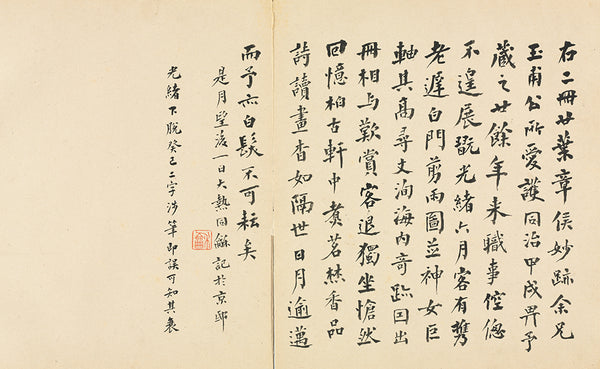 右二冊廿葉章侯妙跡余兄
玉甫公所愛護同治甲戌畀予
藏之廿餘年來職事倥傯
不遑展翫光緒六月客有攜
老遲白門剪雨圖並神女巨
軸其高尋丈洵海内奇跡囙出
冊相与歎賞客退獨坐愴然
回憶柏古軒中煑茗焚香品
詩讀畫杳如隔世日月逾邁
而予亦白髮不可耘矣
是月望後一日大熱同龢記於京邸
光緒下脫癸巳二字涉筆即誤可知其衰